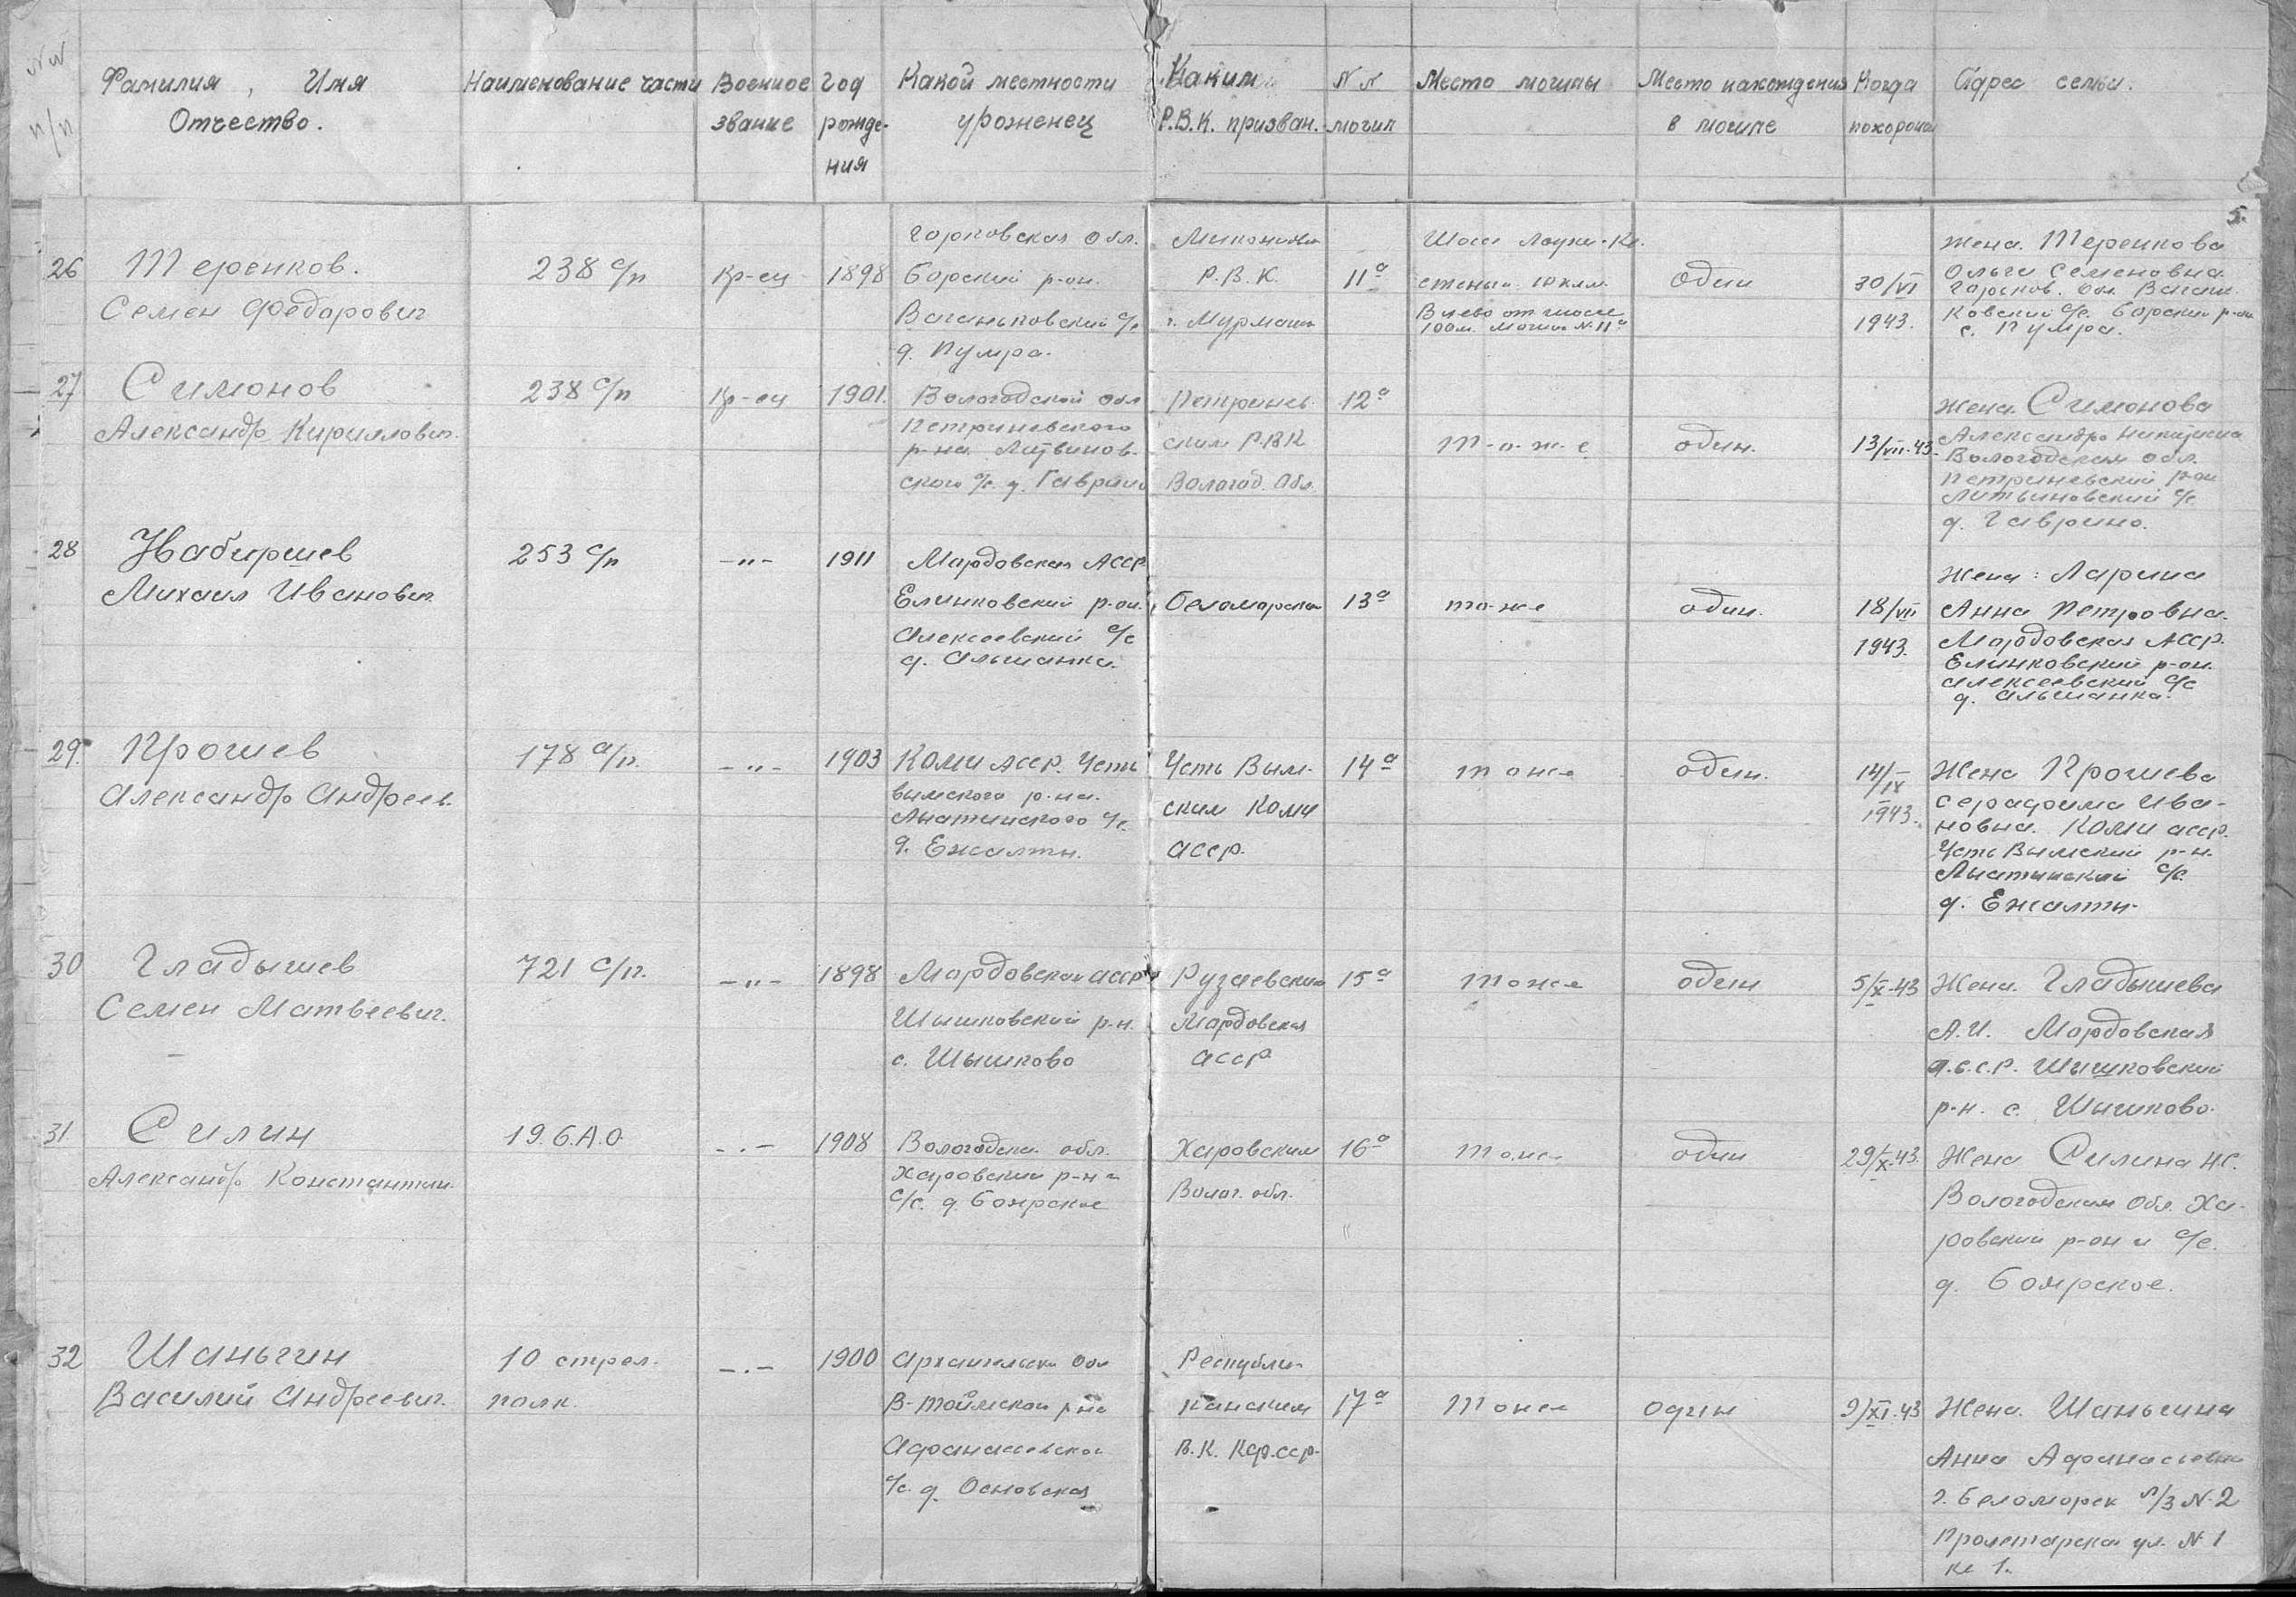 NN п/п
Фамилия, Имя Отчество.
Наименование части
Военное звание
Год рожде-ния
Какой местности уроженец
Каким Р.В.К. призван.
NN могил
Место могилы
Место нахождения в могиле
Когда похоронен
Адрес семьи.
5.
26
Теренков.
Семен Федорович
238 с/п
Кр-ец
1898
Горьковская обл.
Борский р-он.
Ваганьковский с/с
д. Пумра.
Р.В.К.
г. Мурманск
11а
Шоссе Лоухи-Ке-
стеньга 10 клм.
Влево от шоссе
100 м. Могила №11а
Один
30/VI
1943.
Жена. Теренкова
Ольга Семеновна
Горьков. обл.
ковский с/с. Борский р-он
с. Пумра.
27
Симонов
Александр Кириллович.
238 с/п
Кр-ец
1901.
Вологодской обл
Петриневского
р-на. Литвинов-
ского с/с. д. Гаврино
Петринев-
ским Р.В.К
Вологод. Обл.
12а
Т-о-ж-е
один.
13/VII-43.
Жена. Симонова
Александра
Вологодская обл.
Петриневский р-он
Литвиновский с/с
д. Гаврино.
28
Набиршев
Михаил Иванович
253 с/п
-"-
1911
Мордовская АССР.
Елинковский р-он.
Алексеевский с/с
д. Альшанка.
Беломорским
13а
то-же
один.
18/VII
1943.
Жена: Ларина
Анна Петровна.
Мордовская АССР.
Елинковский р-он.
Алексеевский с/с
д. Альшанка.
29.
Прошев
Александр Андреев.
178 а/п.
-"-
1903
Коми АССР. Усть
вымского р-на.
Лятинского с/с.
д. Ежалты.
Усть Вым-
ским Коми
АССР.
14а
тоже
один.
14/IX
1943.
Жена Прошева
Серафима Ива-
новна. Коми АССР.
Усть Вымский р-н.
Лятинский с/с.
д. Ежалты.
30
Гладышев
Семен Матвеевич.
721 с/п.
-"-
1898
Мордовская АССР
Шышковский р-н.
с. Шышково
Рузаевским
Мордовская
АССР
15а
тоже
один
5/X-43
Жена. Гладышева
А.И. Мордовская
А.С.С.Р. Шышковский
р-н. с. Шышково.
31
Силин
Александр Константин.
19. С.А.О.
-"-
1908
Вологодская обл.
Харовский р-н и
с/с. д. Боярское
Харовским
Волог. обл.
16а
тоже
один
29/X-43.
Жена Силина Н.С.
Вологодская Обл. Ха-
ровский р-он и с/с.
д. Боярское.
32
Шаньгин
Василий Андреевич.
10 стрел.
полк.
-"-
1900
Архангельск. Обл
В-тоймской р-на
Афанасьевского
с/с. д. Основская
Республи-
канским
В.К. КФ.ССР.
17а
Тоже
один
9/XI-43
Жена. Шаньгина
Анна Афанасьевна
г. Беломорск Л/З N-2
Пролетарская ул. N 1
кв 1.